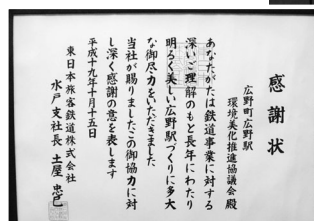 感謝状
広野町広野駅
環境美化推進協議会殿
あなたがたは鉄道事業に対する
深いご理解のもと長年にわたり
明るく美しい広野駅づくりに多大
な御尽力をいただきました
当社が賜りましたこの御協力に対
し深く感謝の意を表します
平成十九年十月十五日
東日本旅客鉄道株式会社
水戸支社長 土屋忠巳